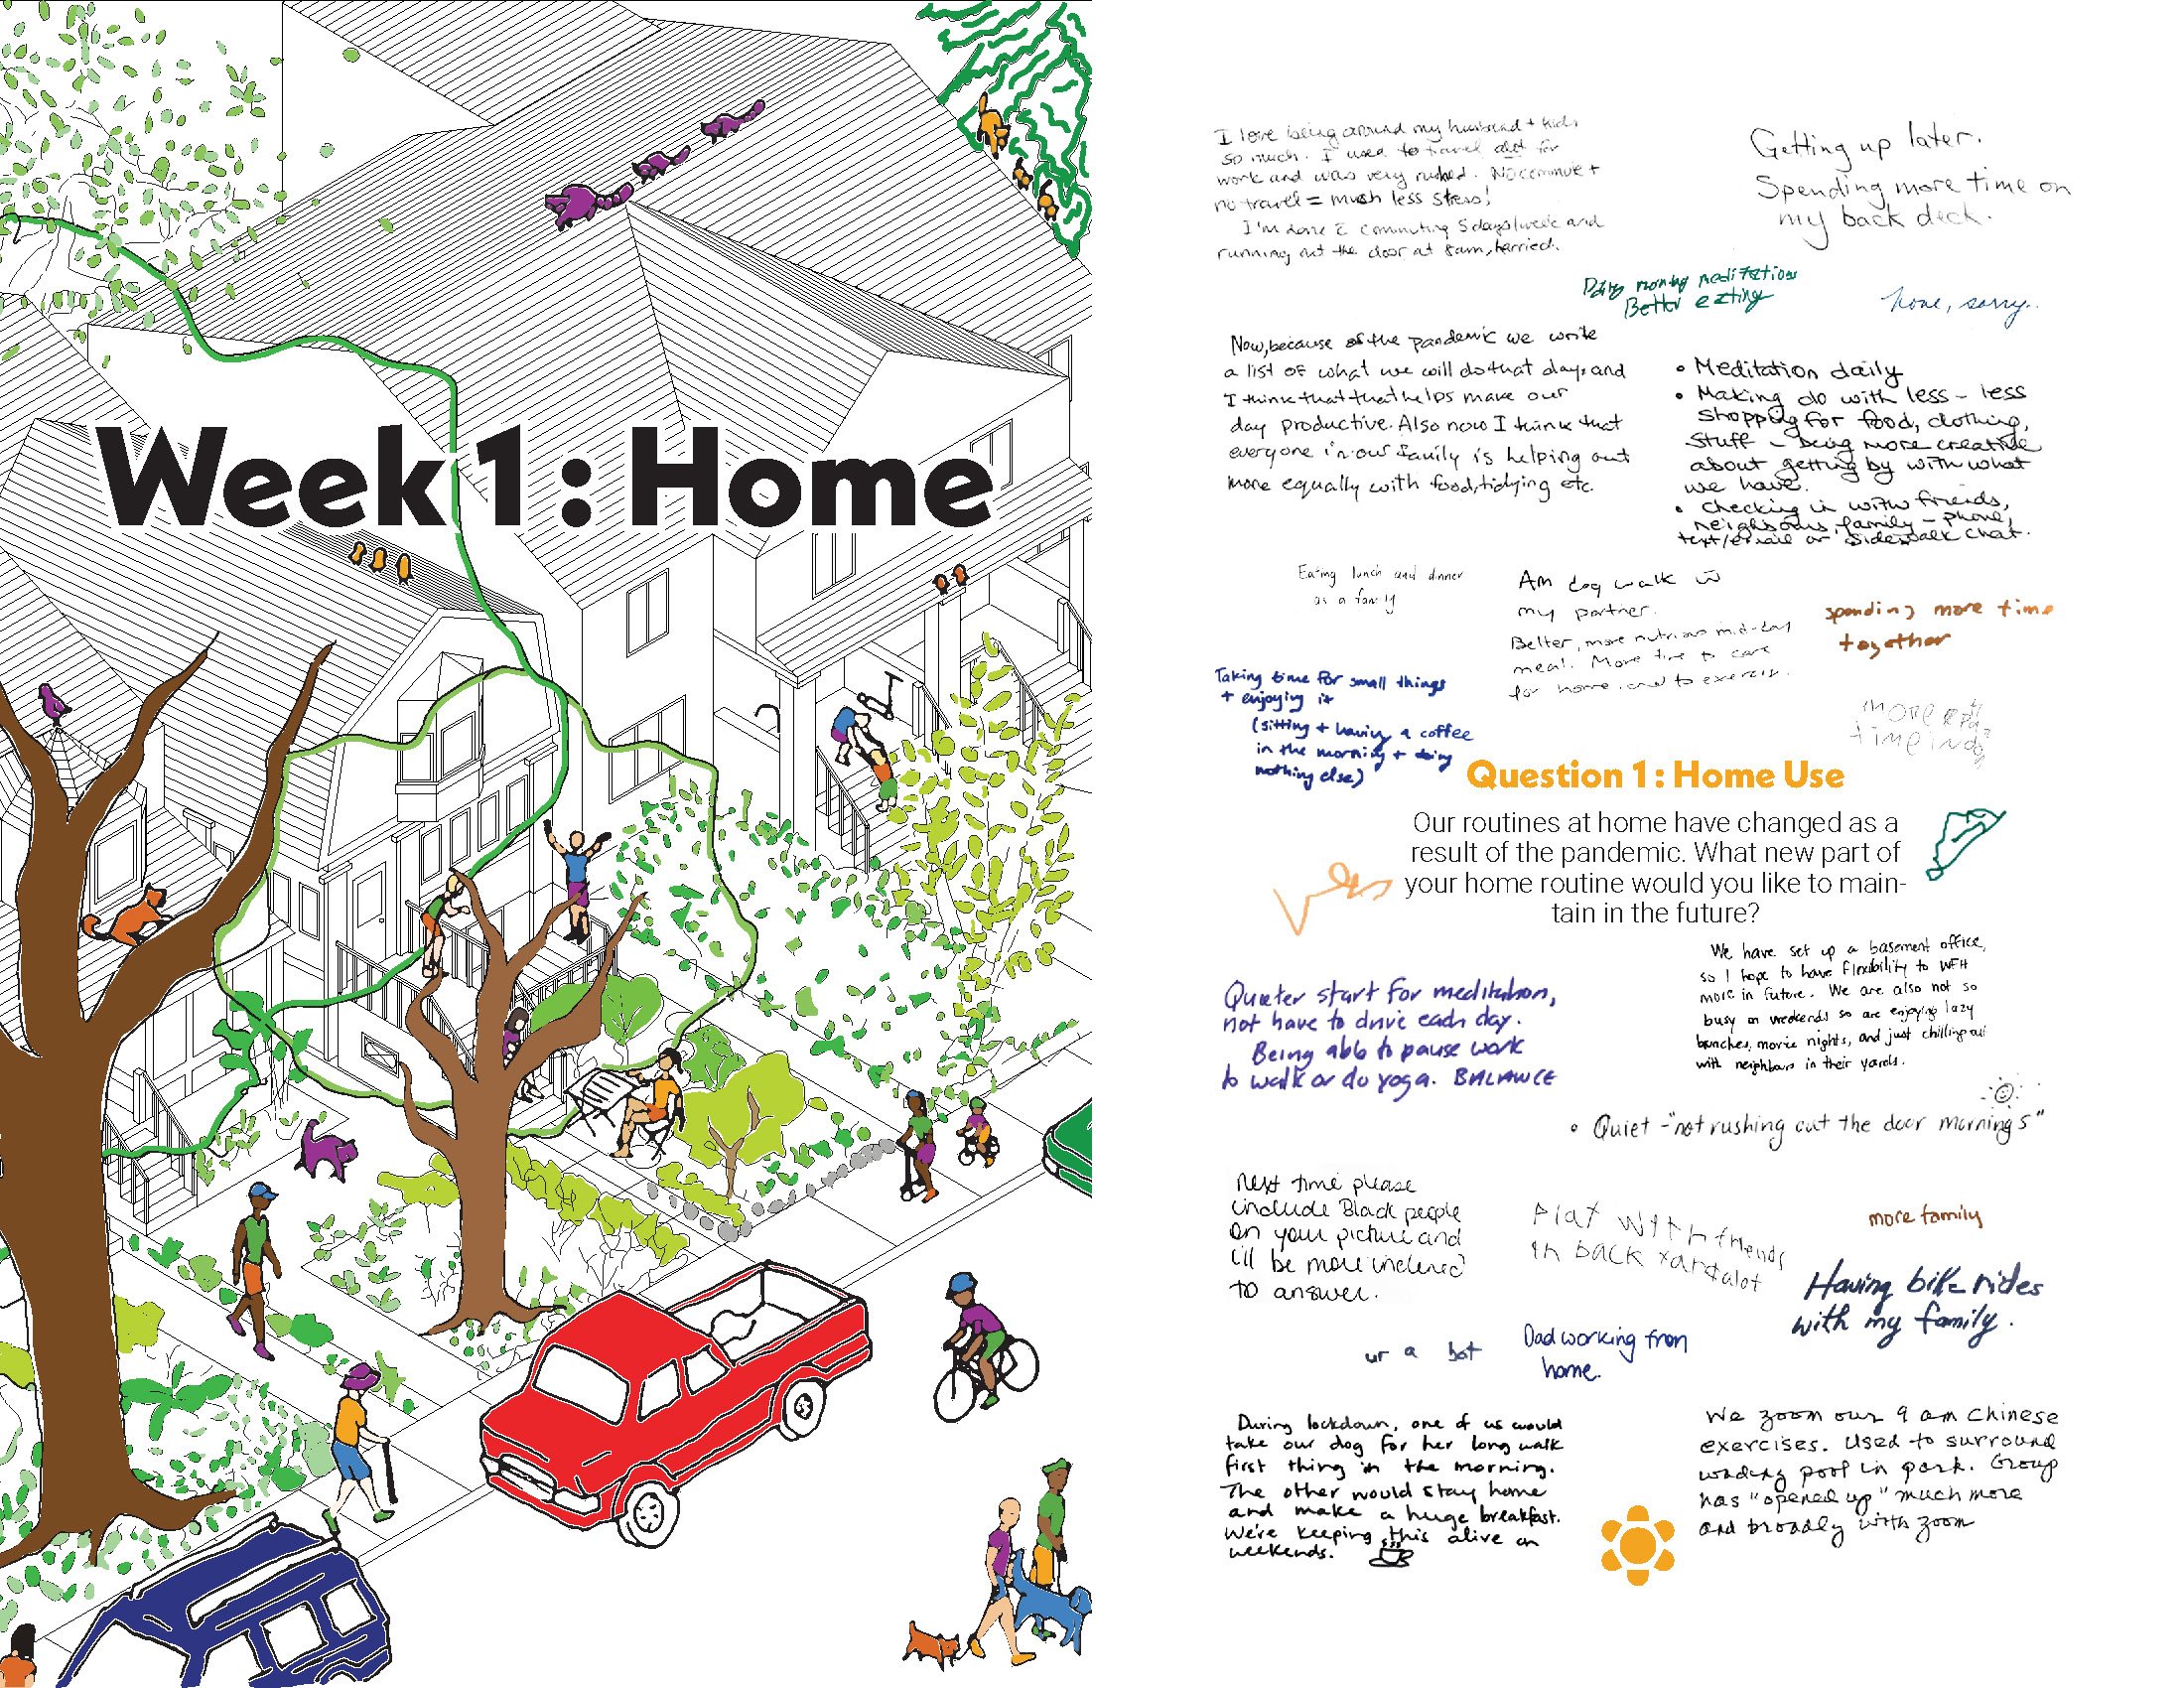 Week 1: Home
I love being around my husband + kids
so much. I used to travel alot for
work and was very rushed. No commute +
no travel = much less stress!
I'm done c commuting 5 days/week and
running out the door at 8am, harried.
Getting up later.
Spending more time on
my back deck.
Daily morning meditations
Better eating
None, sorry.
Now, because of the pandemic we write
a list of what we will do that day and
I think that that helps make our
day productive. Also now I think that
everyone in our family is helping out
more equally with food, tidying etc.
• Meditation daily
• Making do with less - less
shopping for food, clothing,
stuff - being more creative
about getting by with what
we have.
• Checking in with friends,
neighbours, family - phone,
text/email or sidewalk chat.
Eating lunch and dinner
as a family
AM dog walk w
my partner.
Better, more nutritious mid-day
meal. More time to care
for home and to exercise.
spending more time
together
Taking time for small things
+ enjoying it
(sitting + having a coffee
in the morning + doing
nothing else)
more
time
Question 1: Home Use
Our routines at home have changed as a
result of the pandemic. What new part of
your home routine would you like to main-
tain in the future?
Yes
We have set up a basement office,
so I hope to have flexibility to WFH
more in future. We are also not so
busy on weekends so are enjoying lazy
brunches, movie nights, and just chilling out
with neighbours in their yards.
Quieter start for meditation,
not have to drive each day.
Being able to pause work
to walk or do yoga. BALANCE
• Quiet - "not rushing out the door mornings"
Next time please
include Black people
on your picture and
I'll be more inclined
to answer.
Plat with friends
in back yard alot
more family
Having bike rides
with my family.
ur a bot
Dad working from
home.
During lockdown, one of us would
take our dog for her long walk
first thing in the morning.
The other would stay home
and make a huge breakfast.
We're keeping this alive on
weekends.
We zoom our 9 am Chinese
exercises. Used to surround
wading pool in park. Group
has "opened up" much more
and broadly with zoom